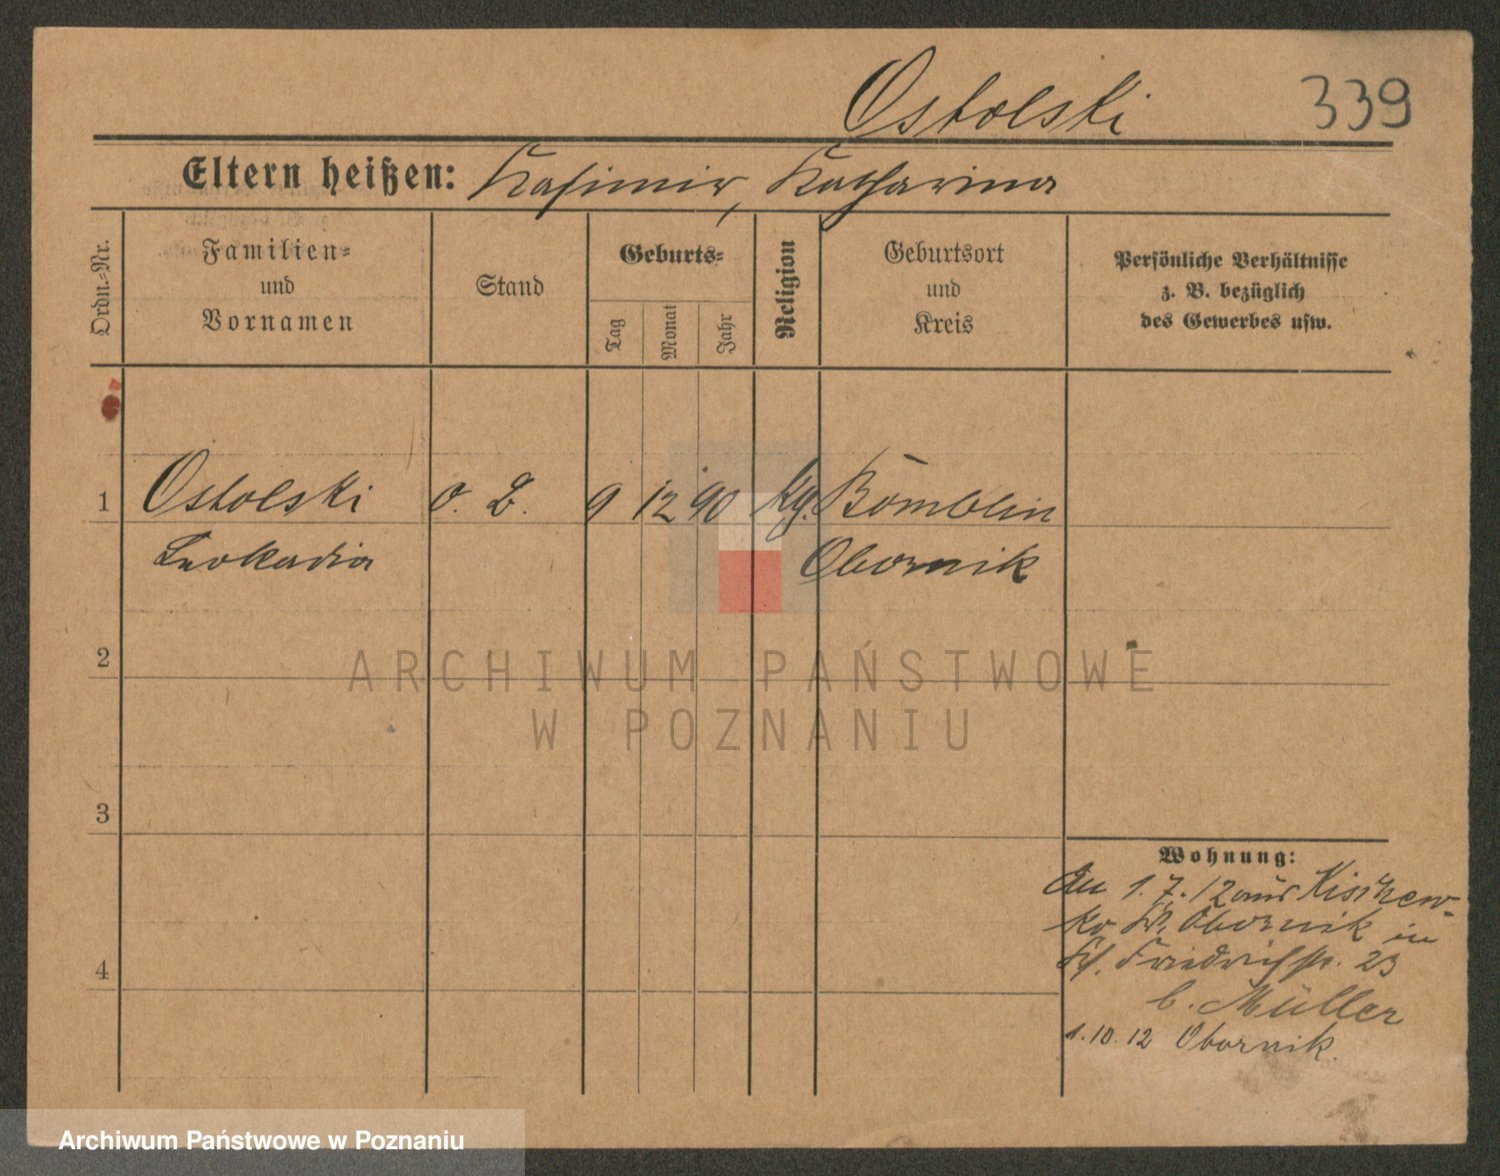 Ostolski 339
Eltern heißen: Kasimir, Katharina
Ordn.-Nr.
Familien-
und
Vornamen
Stand
Geburts-
Tag
Monat
Jahr
Religion
Geburtsort
und
Kreis
Persönliche Verhältnisse
z. B. bezüglich
des Gewerbes usw.
1 Ostolski o. B. 9 12 90 Kg. Bomblin
Leokadia Obornik
2
ARCHIWUM PAŃSTWOWE
W POZNANIU
3
4
Wohnung:
An 1.7.12 aus Kischew-
ko Kr. Obornik in
Friedrichstr. 23
b. Müller
1.10.12 Obornik.
Archiwum Państwowe w Poznaniu